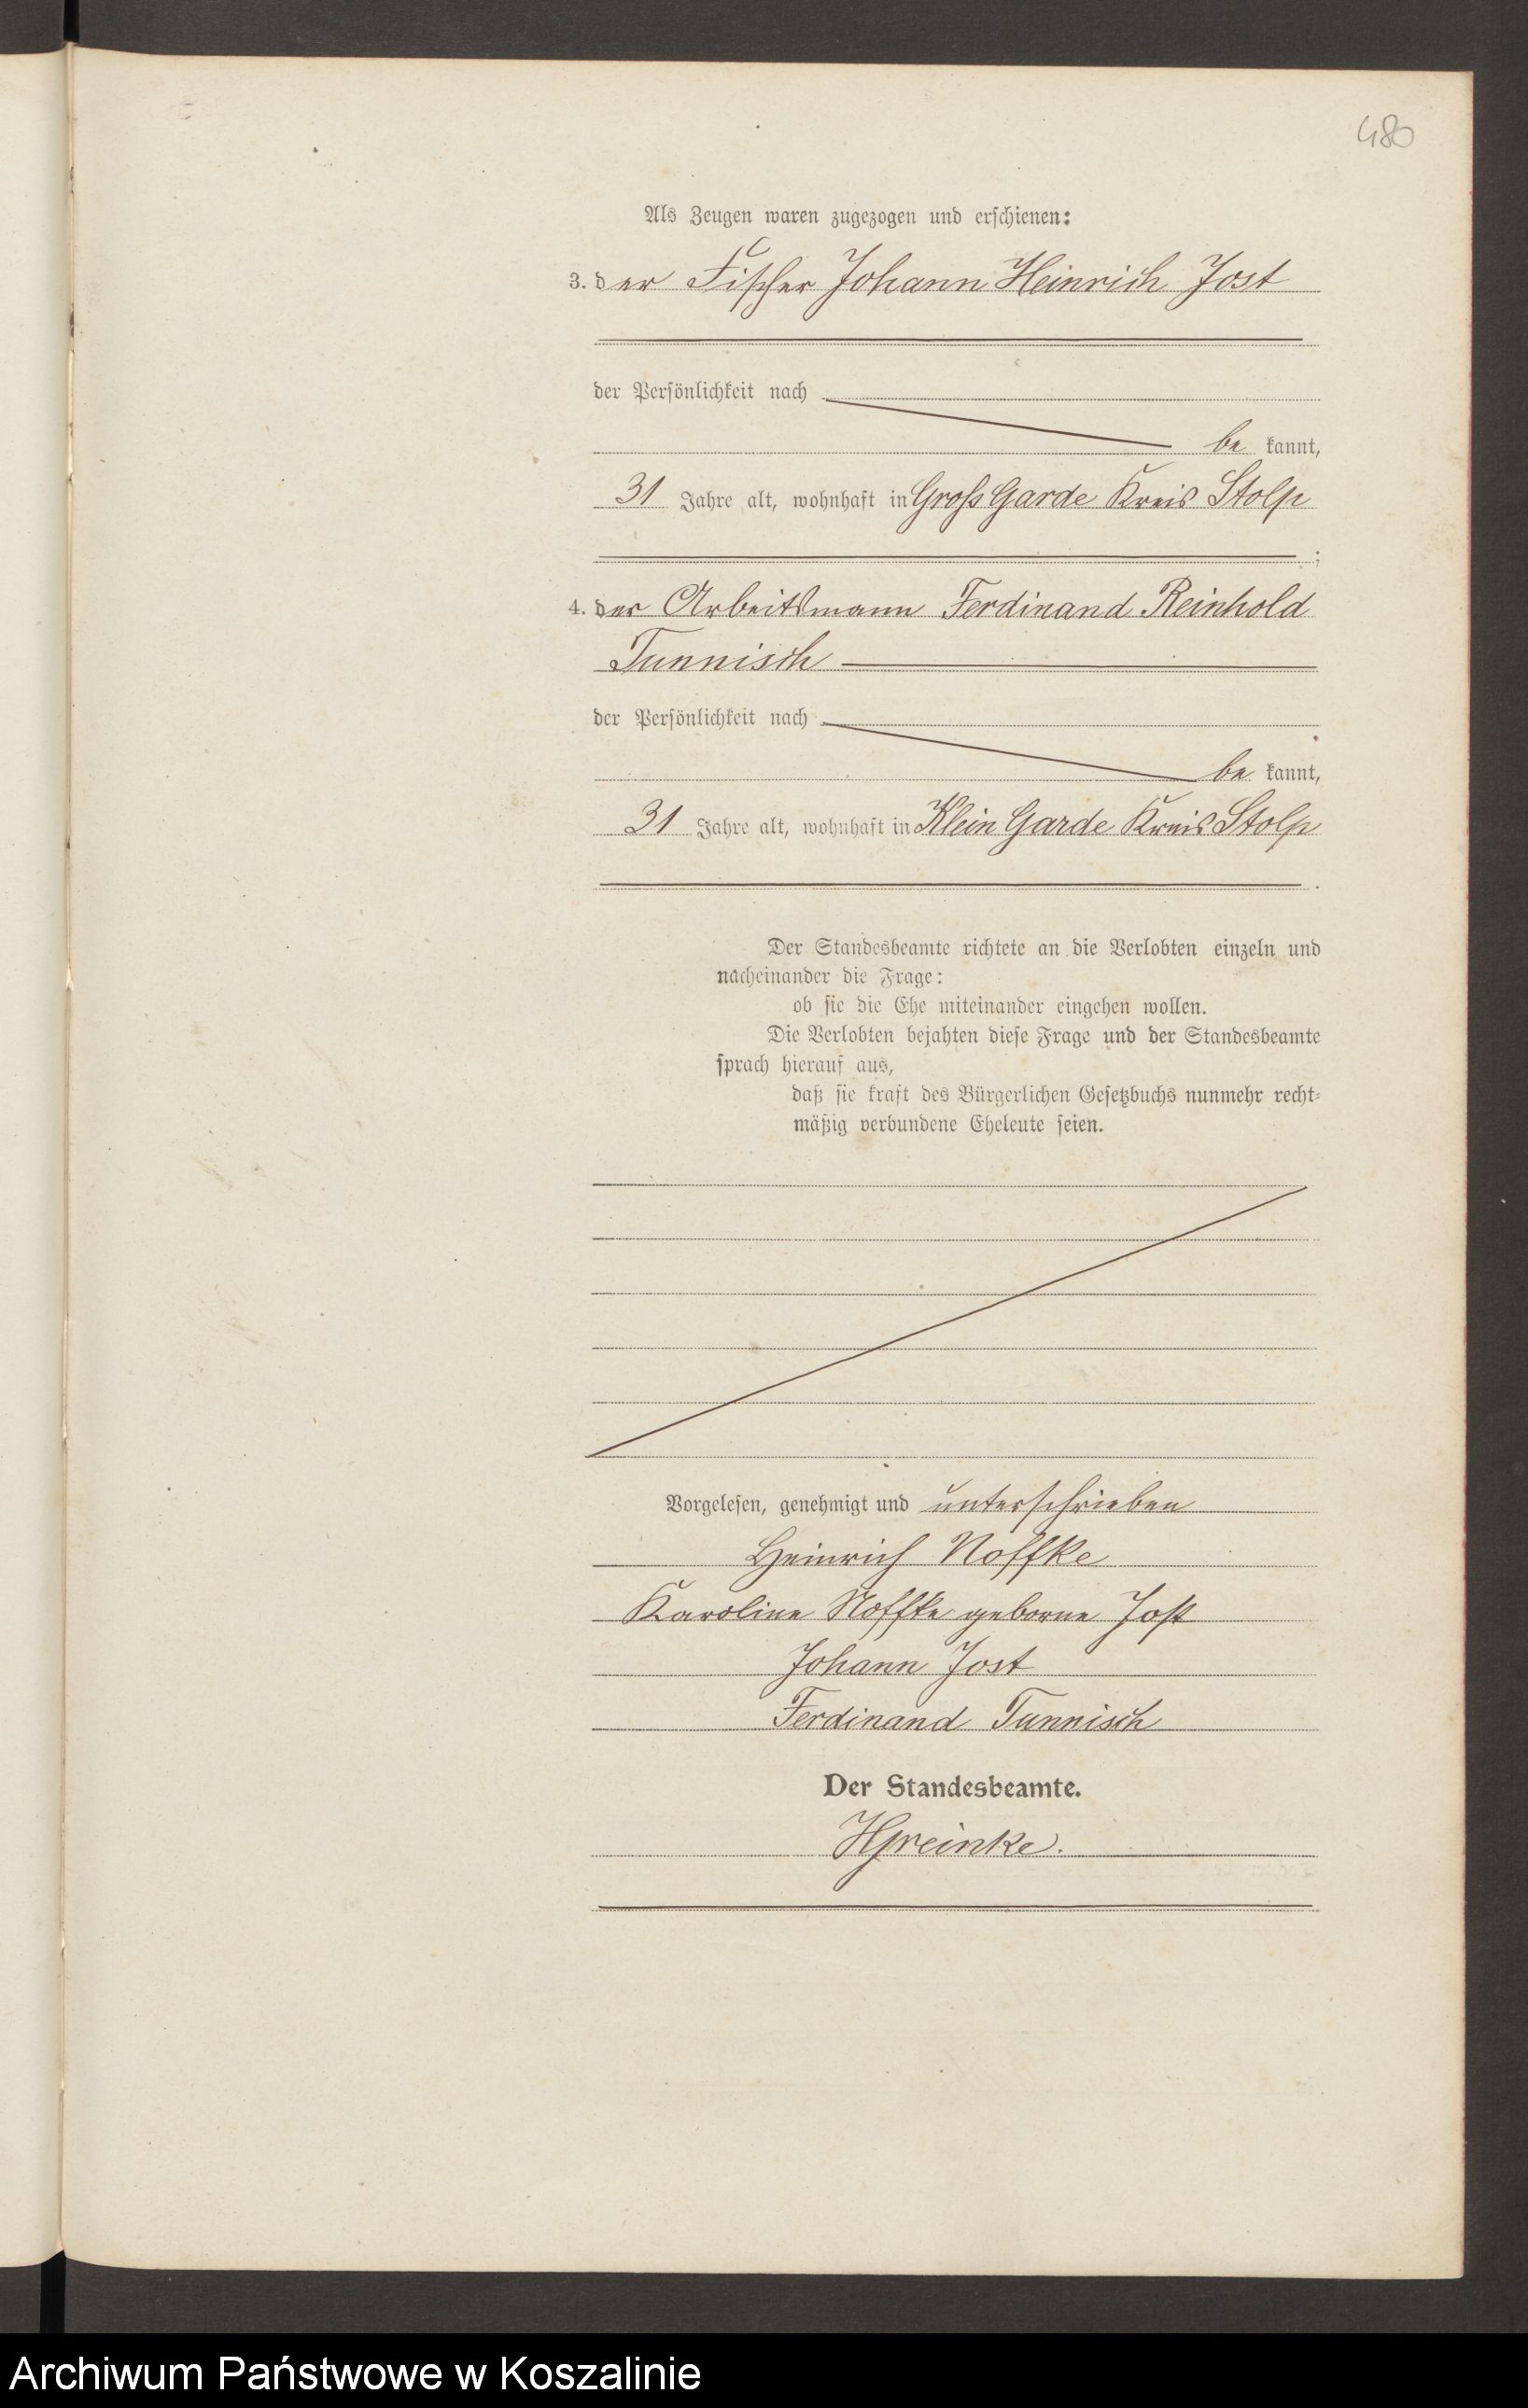 480
Als Zeugen waren zugezogen und erschienen:
3. der Fischer Johann Heinrich Jost
der Persönlichkeit nach
be kannt,
31 Jahre alt, wohnhaft in Groß Garde Kreis Stolp
;
4. der Arbeitsmann Ferdinand Reinhold
Tunnisch
der Persönlichkeit nach
be kannt,
31 Jahre alt, wohnhaft in Klein Garde Kreis Stolp
.
Der Standesbeamte richtete an die Verlobten einzeln und
nacheinander die Frage:
ob sie die Ehe miteinander eingehen wollen.
Die Verlobten bejahten diese Frage und der Standesbeamte
sprach hierauf aus,
daß sie kraft des Bürgerlichen Gesetzbuchs nunmehr recht-
mäßig verbundene Eheleute seien.
Vorgelesen, genehmigt und unterschrieben
Heinrich Noffke
Karoline Noffke geborne Jost
Johann Jost
Ferdinand Tunnisch
Der Standesbeamte.
Archiwum Państwowe w Koszalinie